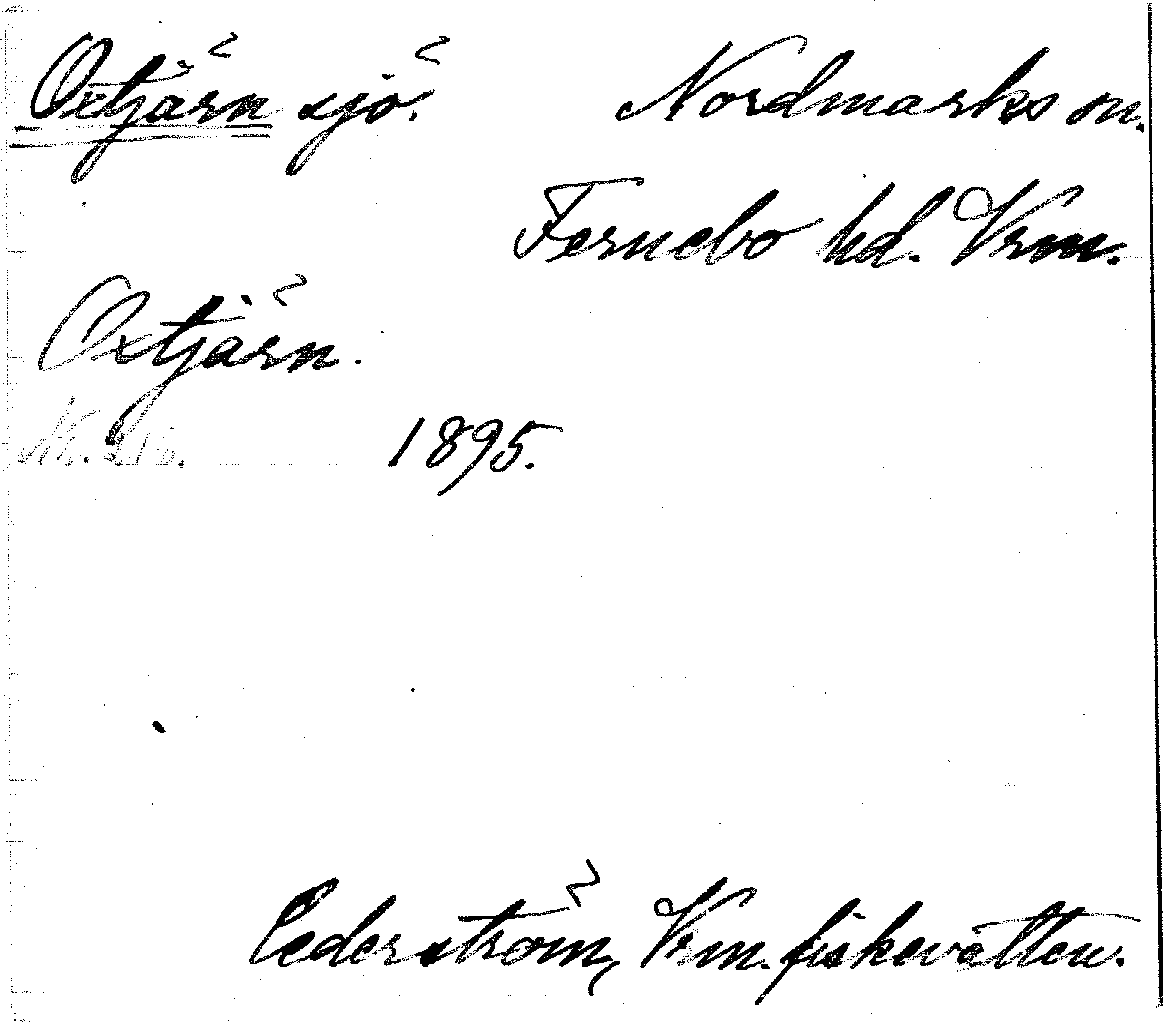 Oxtjärn sjö.
Nordmarks sn.
Fernebo hd. Vrm.
Oxtjärn.
1895.
Cederström, Vrm. fiskevatten.